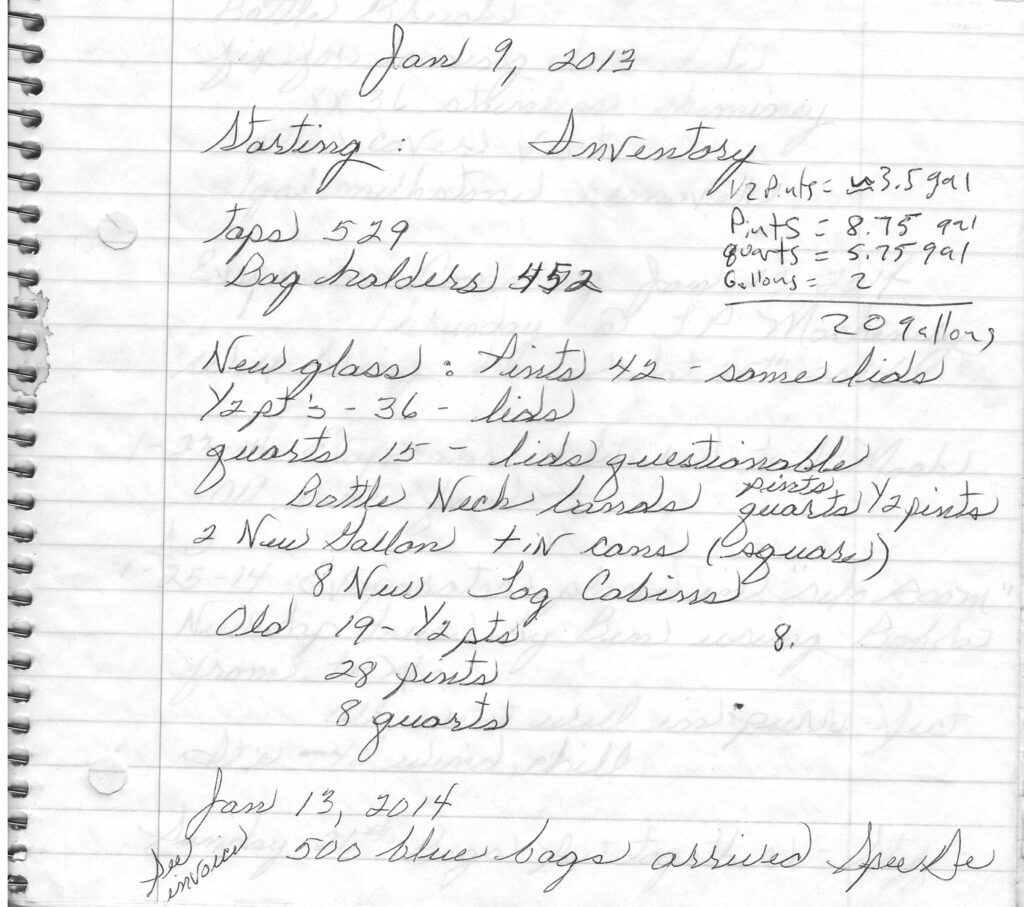 Jan 9, 2013
Starting: Inventory
1/2 Pints = ~3.5 gal
Pints = 8.75 gal
quarts = 5.75 gal
Gallons = 2
20 gallons
Taps 529
Bag holders 452
New glass: Pints 42 - some lids
1/2 pt's - 36 - lids
quarts 15 - lids questionable
Bottle Neck bands pints quarts 1/2 pints
2 New Gallon tin cans (square)
8 New Log Cabins
Old 19 - 1/2 pts
8.
28 pints
8 quarts
Jan 13, 2014
See invoice
500 blue bags arrived Spee De